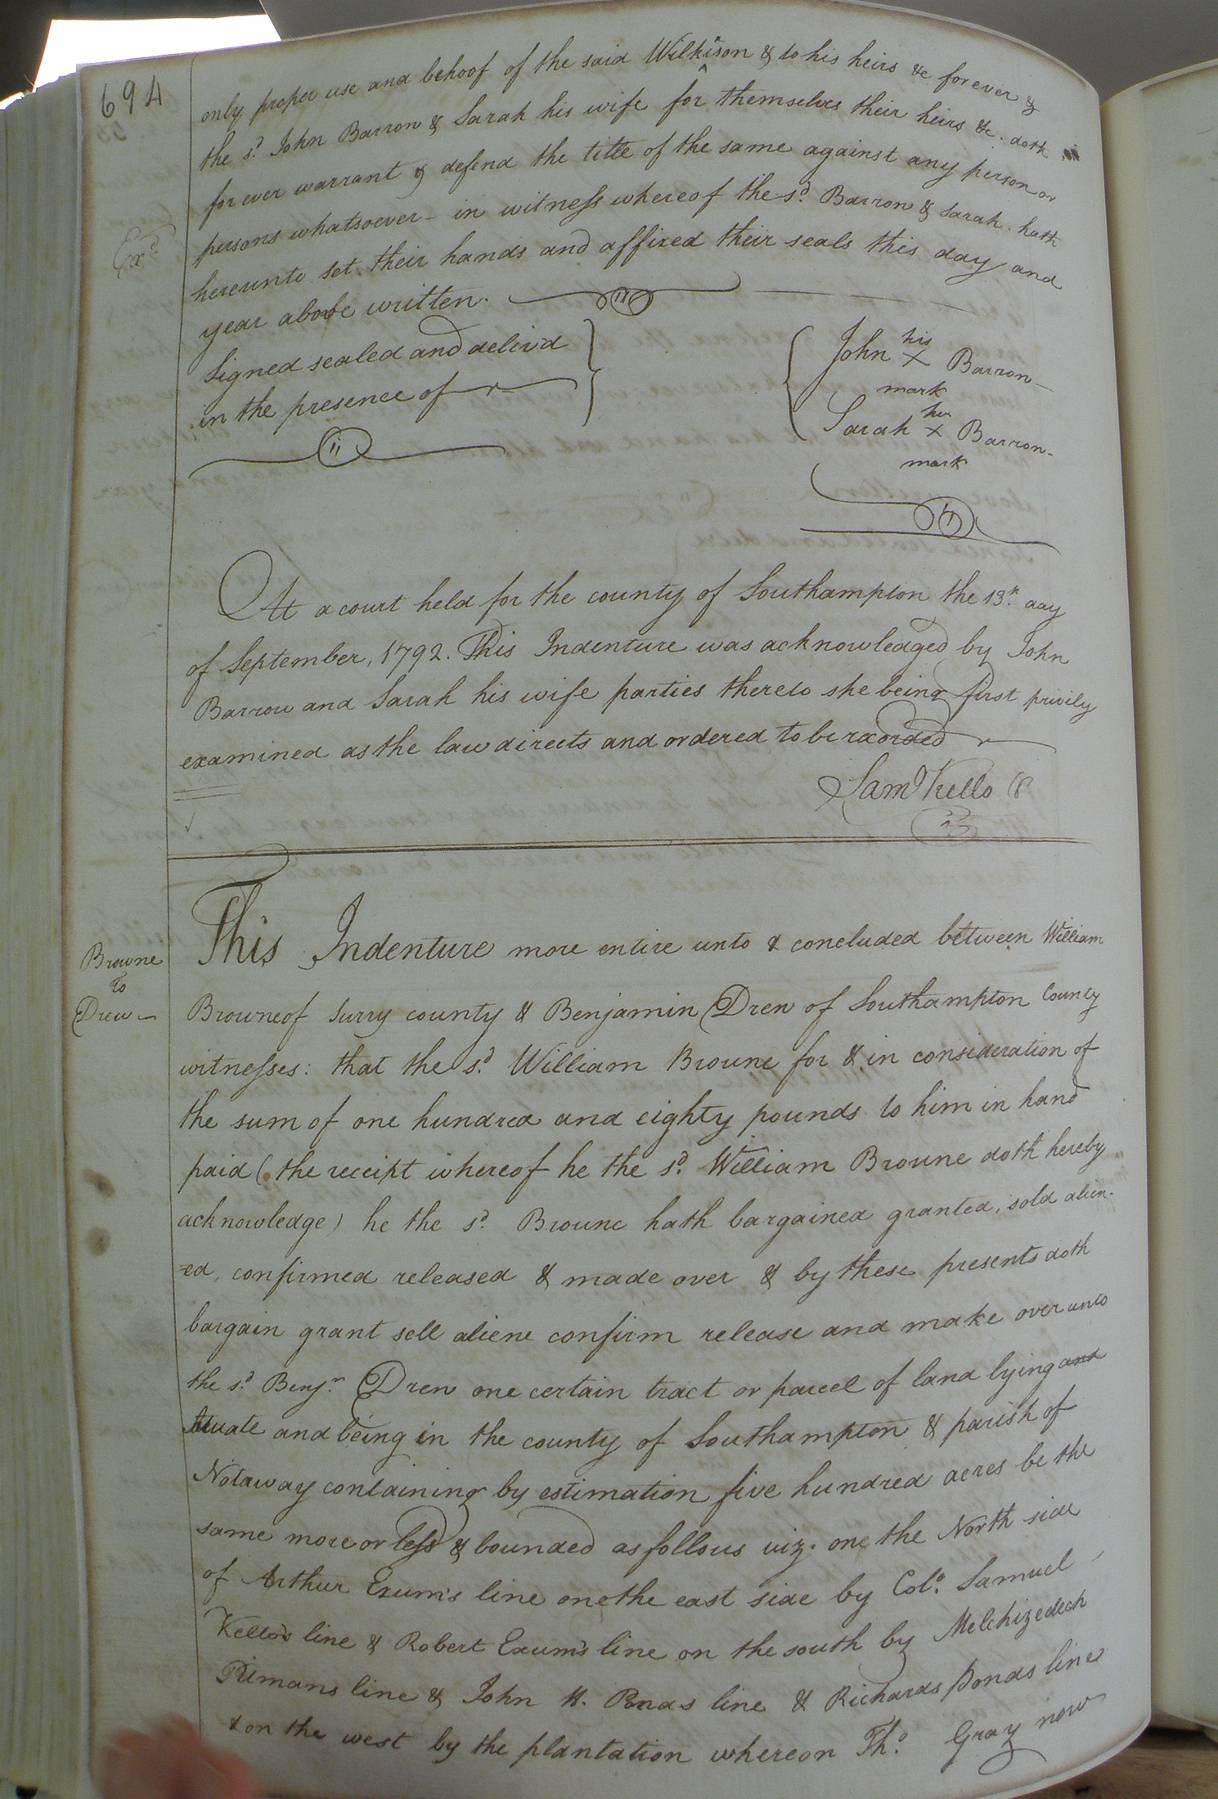 694
only proper use and behoof of the said Wilkison & to his heirs &c forever &
the sd. John Barron & Sarah his wife for themselves their heirs &c. doth
forever warrant & defend the title of the same against any person or
persons whatsoever - in witness whereof the sd. Barron & Sarah hath
Exd.
hereunto set their hands and affixed their seals this day and
year above written.
Signed sealed and deliv'd
in the presence of
John his X Barron
mark
Sarah her X Barron
mark
At a court held for the county of Southampton the 13th. day
of September, 1792. This Indenture was acknowledged by John
Barrow and Sarah his wife parties thereto she being first privily
examined as the law directs and ordered to be recorded
Saml Kello
Browne
to
Drew
This Indenture more entire unto & concluded between William
Browne of Surry county & Benjamin Drew of Southampton County
witnesses: that the sd. William Browne for & in consideration of
the sum of one hundred and eighty pounds to him in hand
paid (the receipt whereof he the sd. William Browne doth hereby
acknowledge) he the sd. Browne hath bargained granted, sold alien-
ed, confirmed released & made over & by these presents doth
bargain grant sell aliene confirm release and make over unto
the sd. Benjn. Drew one certain tract or parcel of land lying and
situate and being in the county of Southampton & parish of
Notaway containing by estimation five hundred acres be the
same more or less & bounded as follows viz. one the North side
of Arthur Exum's line one the east side by Colo. Samuel
Kello's line & Robert Exum's line on the south by Melchizedeck
Pitmans line & John H. Ponds line & Richards Ponds line
& on the west by the plantation whereon Tho. Gray now